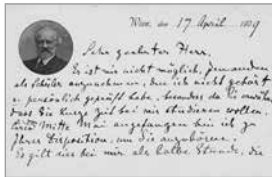 Wien, am 17 April 1909
Sehr geehrter Herr,
Es ist mir nicht möglich, jemanden
als Schüler anzunehmen, den ich nicht gehört
u. persönlich geprüft habe, besonders da Sie
dass Sie kurze Zeit bei mir studieren wollen.
Mitte Mai angefangen bin ich zu
Ihrer Disposition, um Sie anzuhören.
Es gilt dies bei mir als halbe Stunde, die